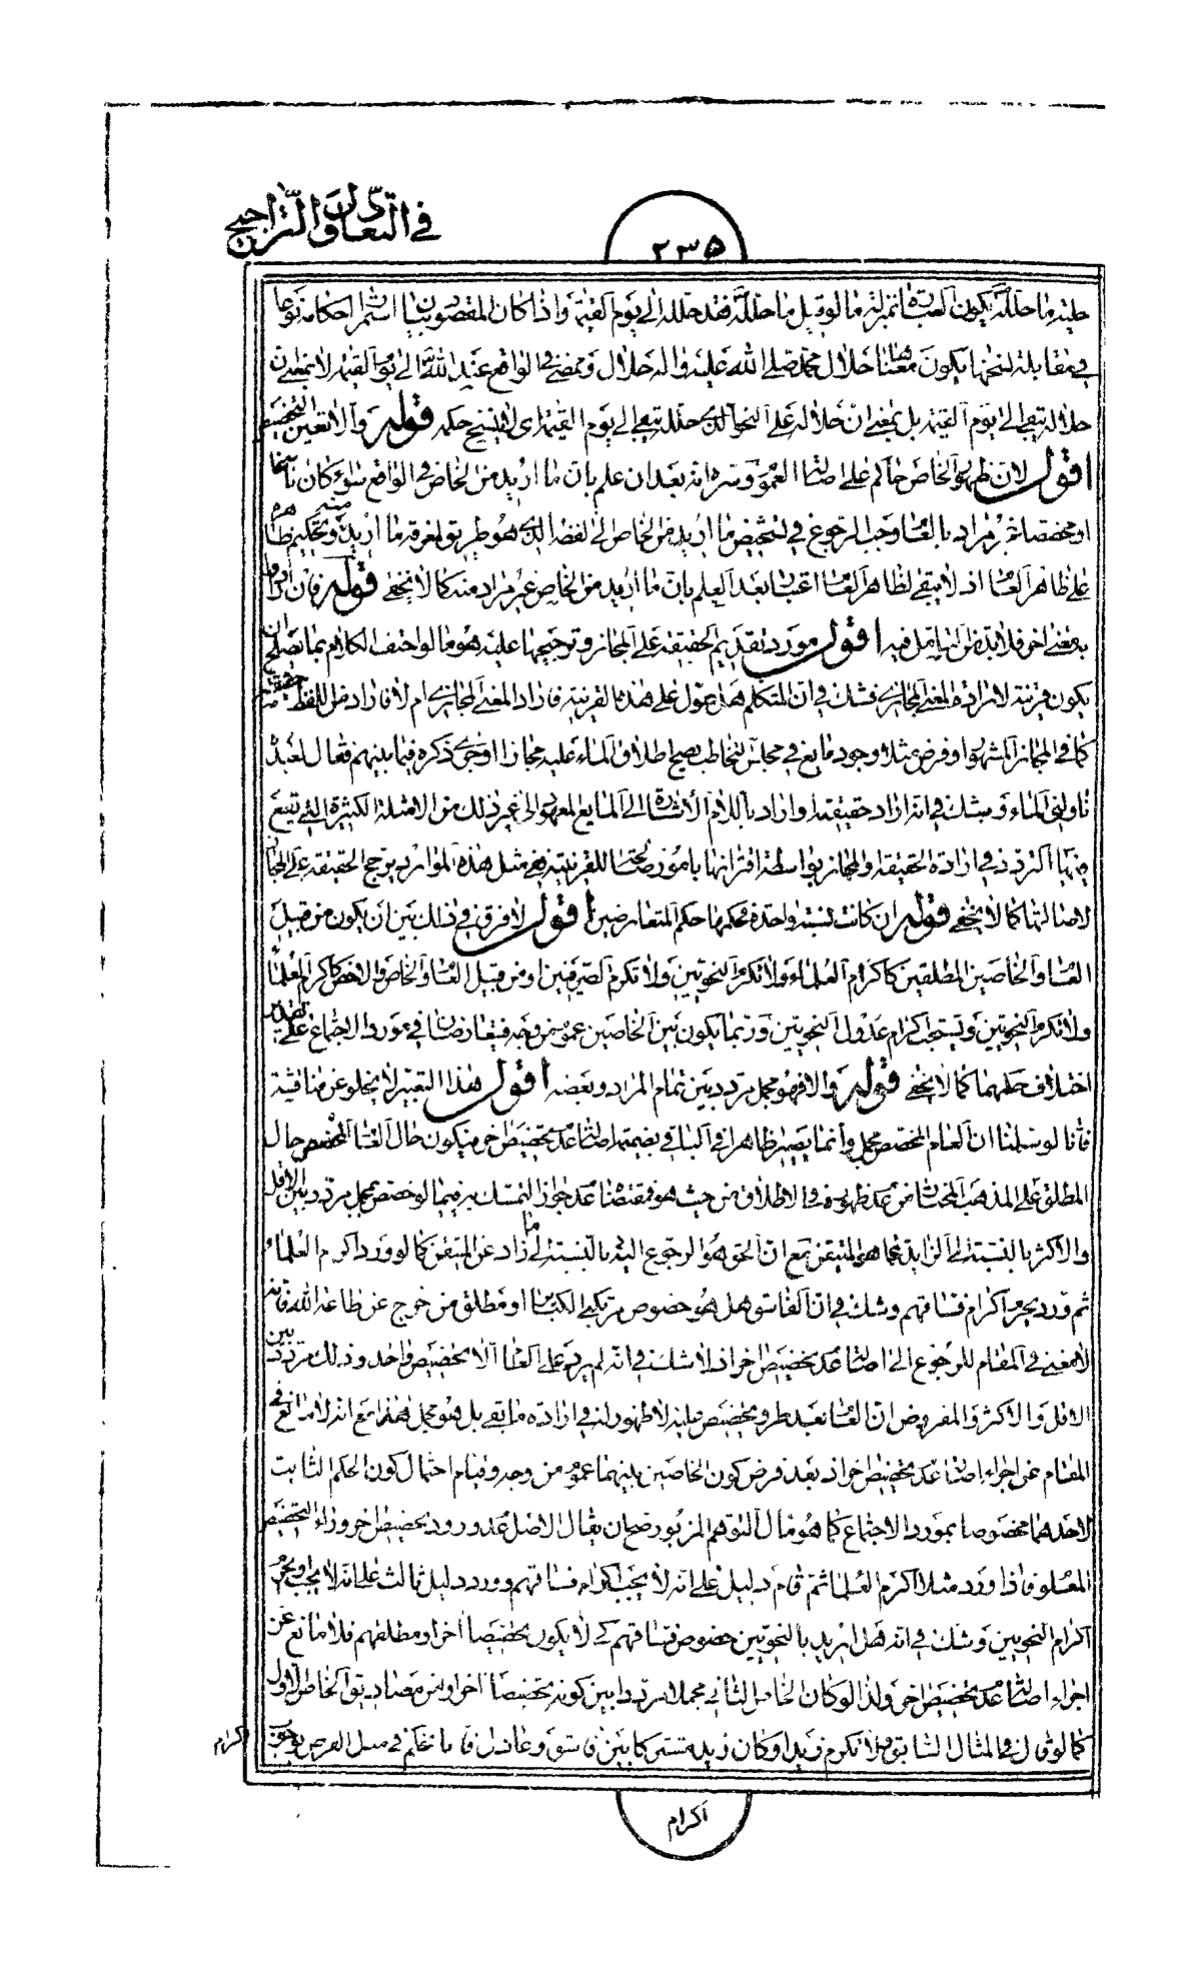 في التعادل والتراجيح
٢٣٥
حليّة ما حلله يكون العبارة بمنزلة ما لو قيل ما حلله فقد حلله الى يوم القيمة واذا كان المقصود بيان استمرار احكامه نوعا
في مقابلة نسخها يكون معناه حلال محمد صلى الله عليه واله حلال ونمضى في الواقع عند الله الى يوم القيمة لا بمعنى ان
حلاله يبقى الى يوم القيمة بل بمعنى ان حلاله على النحو الذي حلله يبقى الى يوم القيمة اى لا ينسخ حكمه قوله والا تعين التخصيص
اقول لان ظهور الخاص حاكم على اصالة العموم وسره انه بعد ان علم بان ما اريد من الخاص في الواقع سواء كان ناسخا
او مخصصا مراد بالعام وجب الرجوع في تشخيص ما اريد من الخاص الى لفظه الذي هو طريق لمعرفة ما اريد منه وتحكيم ظاهره
على ظاهر العام اذ لا يبقى لظاهر العام اعتبار بعد العلم بان ما اريد من الخاص غير مراد منه كما لا يخفى قوله فان
بمعنى اخر فلا بد من التامل فيه اقول مورد تقديم الحقيقة على المجاز وترجيحها عليه هو ما لو احتف الكلام بما يصلح ان
يكون قرينة لارادة المعنى المجازي فشك في ان المتكلم هل عول على هذه القرينة فاراد المعنى المجازي ام لا فاراد من اللفظ حقيقته
كما في المجاز المشهور او فرض مثلا وجود مايع في مجلس التخاطب يصح اطلاق الماء عليه مجازا او جرى ذكره فيما بينهم فقال لعبده
ناولني الماء وشك في انه اراد حقيقته او اراد باللام الاشارة الى المايع المعهود الى غير ذلك من الامثلة الكثيرة التي
منها التردد في ارادة الحقيقة والمجاز بواسطة اقترانها بامور صالحة للقرينية ففي مثل هذه الموارد يرجح الحقيقة على المجاز
لاصالتها كما لا يخفى قوله ان كانت نسبته واحدة فحكمها حكم المتعارضين اقول لا فرق في ذلك بين ان يكون من قبيل
العام والخاصين المطلقين كاكرام العلماء ولا تكرم النحويين ولا تكرم الصرفيين او من قبيل العام والخاص والاخص كاكرم العلماء
ولا تكرم النحويين ويستحب اكرام عدول النحويين وربما يكون بين الخاصين عموم من وجه فيتعارضان في مورد الاجتماع على تقدير
اختلاف حكمهما كما لا يخفى قوله والا فهو مجمل مردد بين تمام المراد وبعضه اقول هذا التعبير لا يخلو عن مناقشة
فانا لو سلمنا ان العام المخصص مجمل وانما يصير ظاهرا في الباقي بضميمة اصالة عدم تخصيص اخر فيكون حال العام المخصص حال
المطلق على المذهب المختار من عدم ظهوره في الاطلاق من حيث هو فمقتضاه عدم جواز التمسك به فيما لو خصص بمجمل مردد بين الاقل
والاكثر بالنسبة الى الزايد عما هو المتيقن مع ان الحق هو الرجوع اليه بالنسبة الى ما زاد عن المتيقن كما لو ورد اكرم العلماء
ثم ورد يحرم اكرام فساقهم وشك في ان الفاسق هل هو خصوص مرتكبي الكبائر او مطلق من خرج عن طاعة الله فانه
لا معنى في المقام للرجوع الى اصالة عدم تخصيص اخر اذ لا شك في انه لم يرد على العام الا تخصيص واحد وذلك مردد بين
الاقل والاكثر والمفروض ان العام بعد طرو تخصيص عليه لا ظهور له في ارادة ما بقى بل هو مجمل فهذا مع انه لا مانع في
المقام عن اجراء اصالة عدم تخصيص اخر اذ بعد فرض كون الخاصين بينهما عموم من وجه وقيام احتمال كون الحكم الثابت
لاحدهما مخصوصا بمورد الاجتماع كما هو مآل التوهم المزبور صح ان يقال الاصل عدم ورود تخصيص اخر وراء التخصيص
المعلوم فاذا ورد مثلا اكرم العلماء ثم قام دليل على انه لا يجب اكرام فساقهم وورد دليل ثالث على انه لا يجب او يحرم
اكرام النحويين وشك في انه هل اريد بالنحويين خصوص فساقهم كى لا يكون تخصيصا اخر او مطلقهم فلا مانع عن
اجراء اصالة عدم تخصيص اخر ولذا لو كان الخاص الثاني مجملا مرددا بين كونه تخصيصا اخر او من مصاديق الخاص الاول
كما لو قال في المثال السابق لا تكرم زيدا وكان زيد مشتركا بين فاسق وعادل فانا نحكم في مثل الفرض بوجوب
اكرام
اكرام